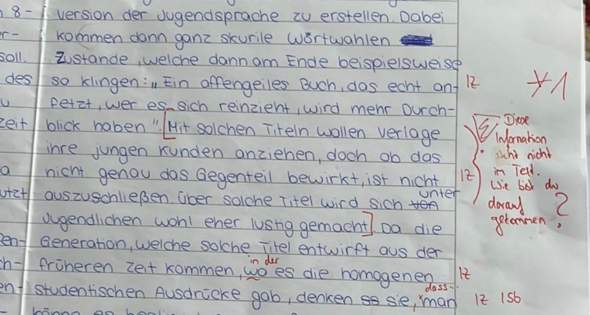 8- version der Jugendsprache zu erstellen. Dabei
r- kommen dann ganz skurile Wortwahlen
soll. zustande, welche dann am Ende beispielsweise
des so klingen: „Ein affengeiles Buch, das echt an- IZ
u fetzt, wer es sich reinzieht, wird mehr Durch-
zeit blick haben" [Mit solchen Titeln wollen Verlage
ihre jungen Kunden anziehen, doch ob das
a nicht genau das Gegenteil bewirkt, ist nicht IZ
utzt auszuschließen. Über solche Titel wird sich von unter
Jugendlichen wohl eher lustig gemacht.] Da die
en- Generation, welche solche Titel entwirft aus der
ch- früheren Zeit kommen, wo in der es die homogenen IZ
en- studentischen Ausdrücke gab, denken sie, dass man IZ ISb
Diese
Information
steht nicht
im Text.
Wie bist du
darauf
gekommen?